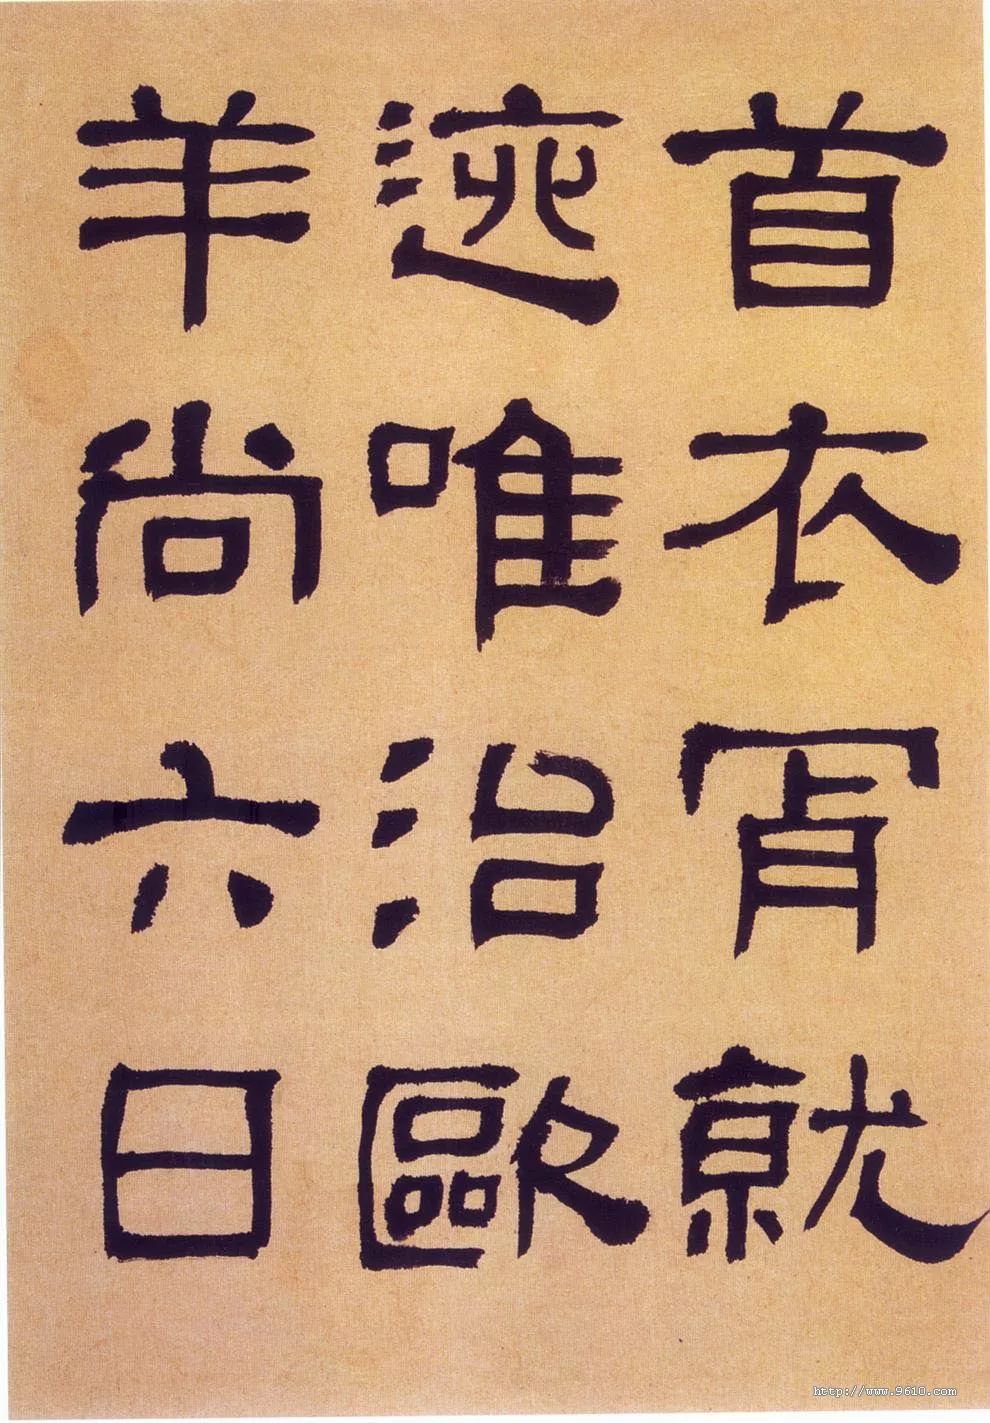 首衣就
迹唯治歐
羊尚六日
http://www.9610.com